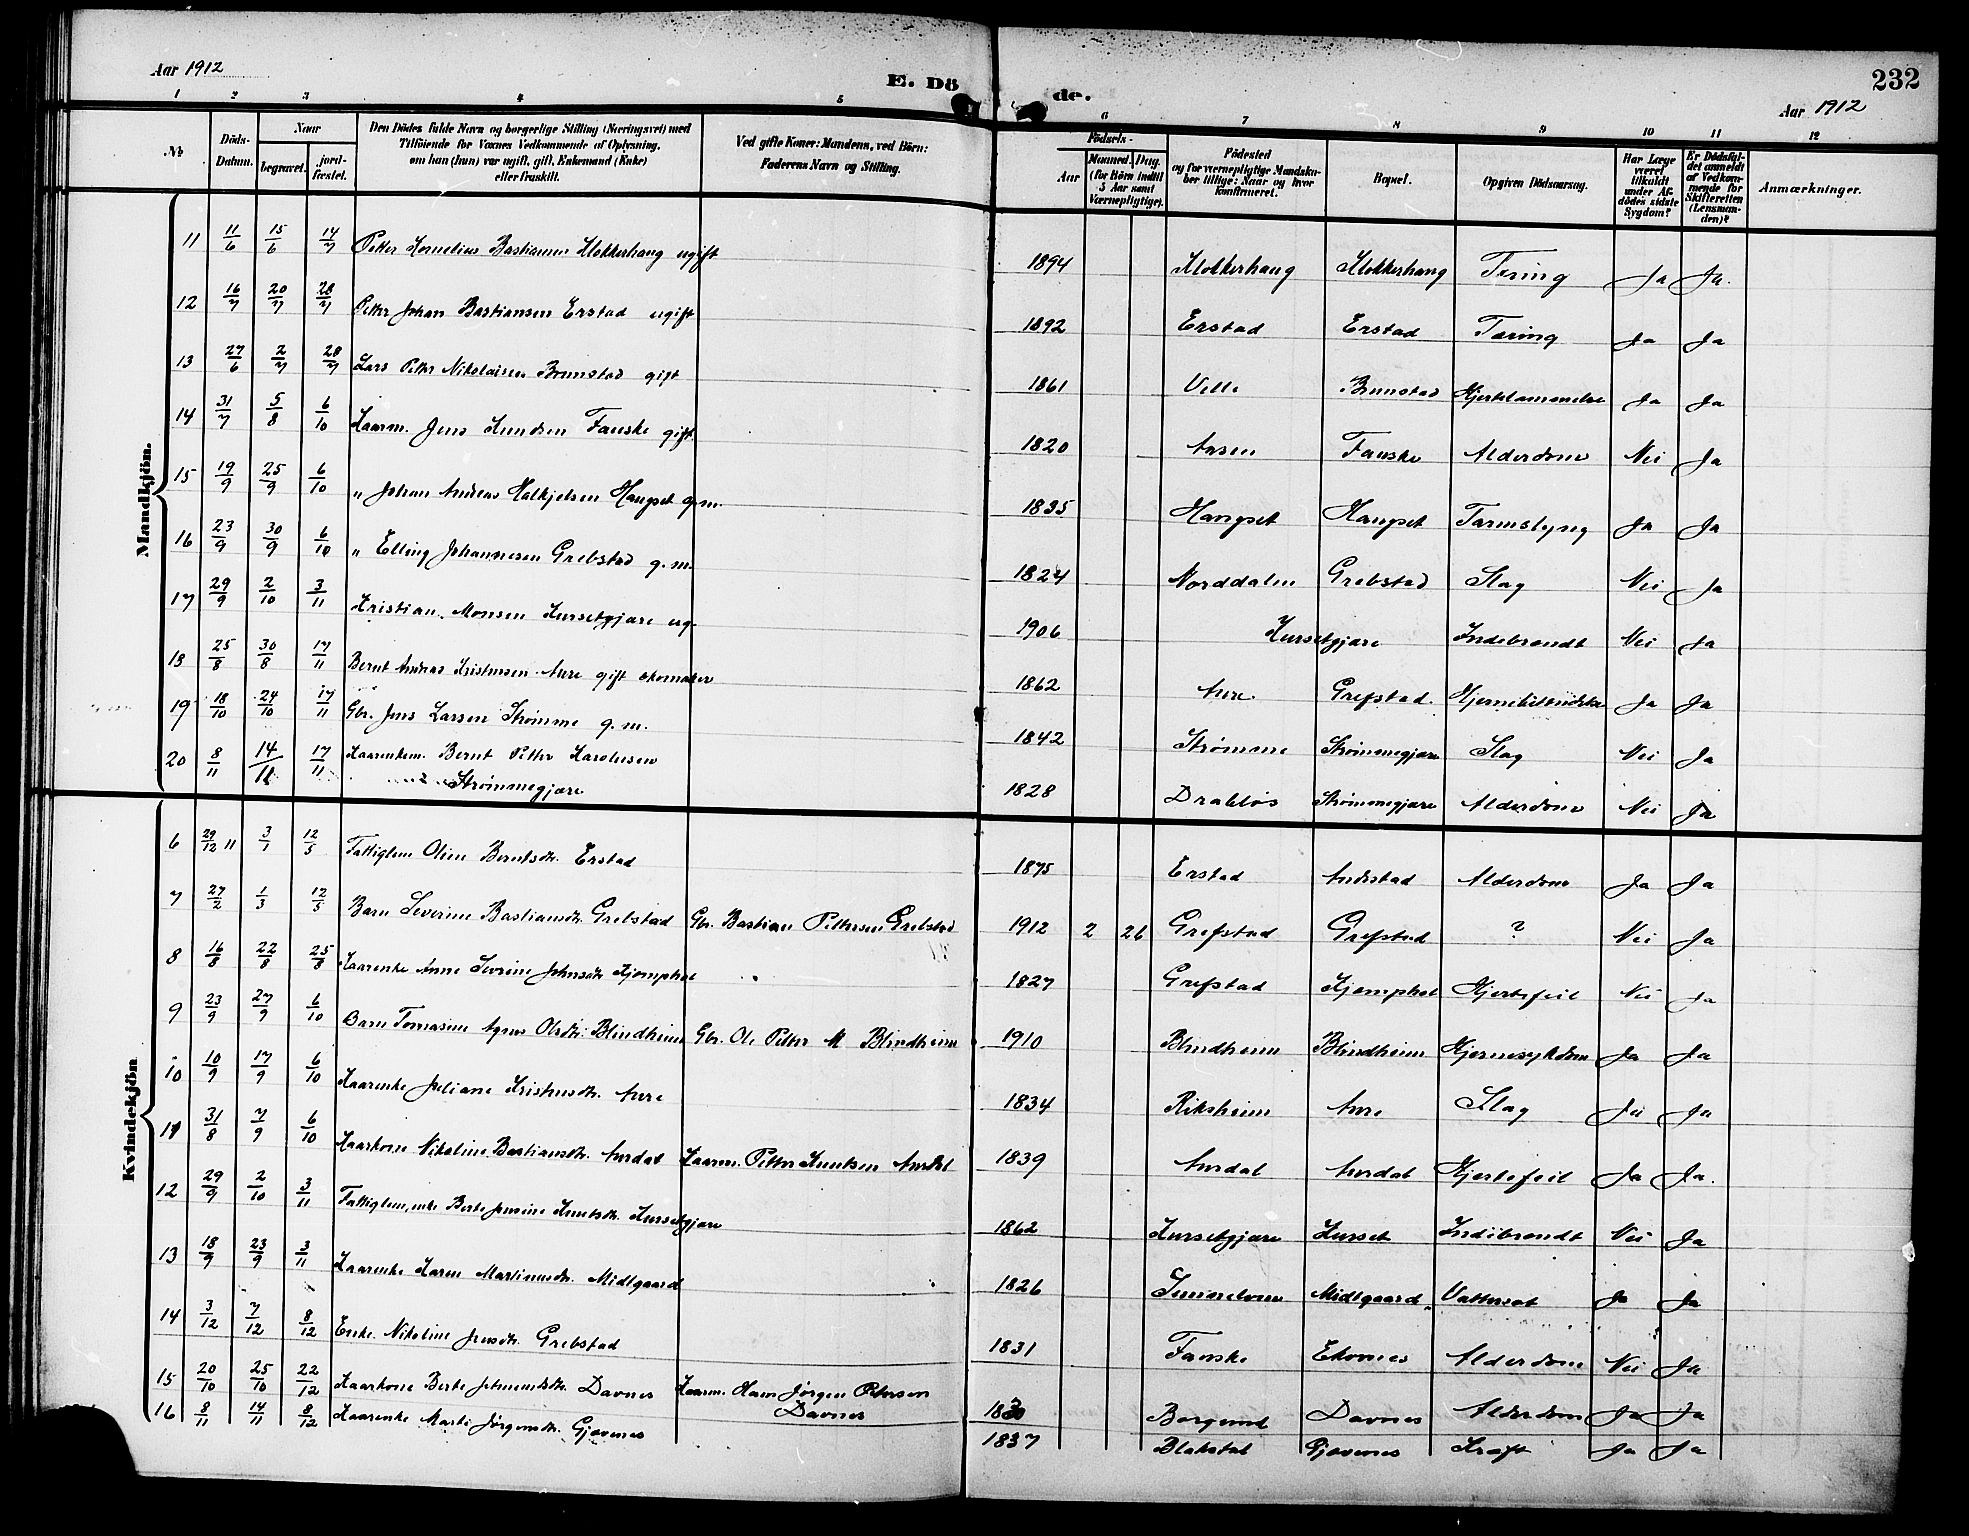 Aar 1912
E. Døde.
232
Aar 1912
1 2 3 4 5 6 7 8 9 10 11 12
№
Döds-Datum.
Naar
begravet.
jord-fæstet.
Den Dødes fulde Navn og borgerlige Stilling (Næringsvei) med
Tilføiende for Voxnes Vedkommende af Oplysning,
om han (hun) var ugift, gift, Enkemand (Enke)
eller fraskilt.
Ved gifte Koner: Mandens, ved Börn:
Faderens Navn og Stilling.
Födsels-
Aar
Maaned. Dag.
(for Börn indtil
5 Aar samt
Værnepligtige).
Födested
og for værnepligtige Mandska-
ber tillige: Naar og hvor
konfirmeret.
Bopæl.
Opgiven Dödsaarsag.
Har Læge
været
tilkaldt
under Af-
dødes sidste
Sygdom?
Er Dödsfal-
det anmeldt
af Vedkom-
mende for
Skifteretten
(Lensman-
den)?
Anmærkninger.
Mandkjön.
11 11/6 15/6 14/7 Petter Kornelius Bastiansen Klokkerhaug ugift 1894 Klokkerhaug Klokkerhaug Tæring Ja Ja.
12 16/7 20/7 28/7 Petter Johan Bastiansen Erstad ugift 1892 Erstad Erstad Tæring Ja Ja
13 27/6 2/7 28/7 Lars Petter Nikolaisen Brunstad gift 1861 Velle Brunstad Hjertelammelse Ja Ja
14 31/7 5/8 6/10 Kaarm. Jens Knudsen Fauske gift 1820 Aasen Fauske Alderdom Nei Ja
15 19/9 25/9 6/10 " Johan Andreas Halkjelsen Haugset g.m. 1835 Haugset Haugset Tarmslyng Ja Ja
16 23/9 30/9 6/10 " Elling Johannesen Grebstad g.m. 1824 Norddalen Grebstad Slag Nei Ja
17 29/9 2/10 3/11 Kristian Monsen Kursetgjære ug. 1906 Kursetgjære Indebrændt Nei Ja
18 25/8 30/8 17/11 Bernt Andreas Kristensen Aure gift skomaker 1862 Aure. Grefstad. Ja Ja
19 18/10 24/10 17/11 Gbr. Jens Larsen Strømme g.m. 1842 Strømme Strømmegjære Slag Nei Ja
20 8/11 14/11 17/11 Kaarenkem. Bernt Petter Karolusen
Strømmegjære 1828 Drabløs Strømmegjære Alderdom Nei Ja
Kvindekjön
6 29/12 11 3/1 12/5 Fattiglem Oline Berntsdtr. Erstad 1875 Erstad Andestad Alderdom Ja Ja
7 27/2 1/3 12/5 Barn Severine Bastiansdtr. Grebstad Gbr. Bastian Pettersen Grebstad 1912 2 26 Grefstad Grefstad ? Nei Ja
8 16/8 22/8 25/8 Kaarenke Anne Severine Johnsdtr Kjemphol 1827 Grefstad Kjemphol Hjertefeil Nei Ja
9 23/9 27/9 6/10 Barn Tomasine Agnes Olsdtr. Blindheim Gbr. Ole Petter M Blindheim 1910 Blindheim Blindheim Hjernesykdom Ja Ja
10 10/9 17/9 6/10 Kaarenke Juliane Kristensdtr. Aure 1834 Riksheim Aure Slag Ja Ja
11 31/8 7/9 6/10 Kaarkone Nikoline Bastiansdtr. Aurdal Kaarm. Petter Knutsen Aurdal 1839 Aurdal Aurdal Hjertefeil Ja Ja.
12 29/9 2/10 3/11 Fattiglem, enke Berte Jensine Knutsdtr. Kursetgjære 1862 Kursetgjære Kurset Indebrændt Nei Ja
13 18/9 23/9 3/11 Kaarenke Karen Martinusdtr. Midtgaard 1826 Midtgaard Vattersot Ja Ja
14 3/12 7/12 8/12 Enke. Nikoline Jensdtr. Grebstad 1831 Fauske Ekornes Alderdom Nei Ja
15 20/10 25/10 22/12 Kaarkone Berte Davnes Kaarm. Hans Jørgen Petersen
Davnes Borgund Davnes Alderdom Ja Ja
16 8/11 14/11 8/12 Kaarenke Marte Jørgensdtr. Gjævenes 1837 Blakstal Gjævenes Kræft Ja Ja